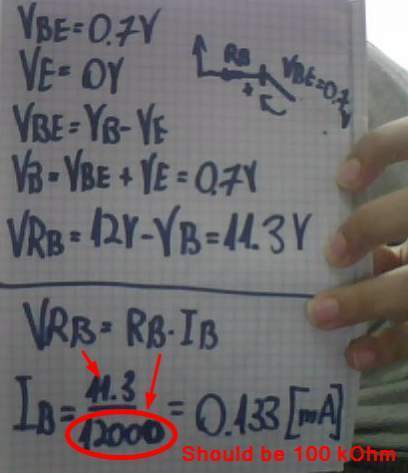 VBE = 0.7V
VE = 0V
RB
VBE = 0.7V
+
VBE = VB - VE
VB = VBE + VE = 0.7V
VRB = 12V - VB = 11.3V
VRB = RB · IB
IB = 11.3 / 12000 = 0.133 [mA]
Should be 100 kOhm